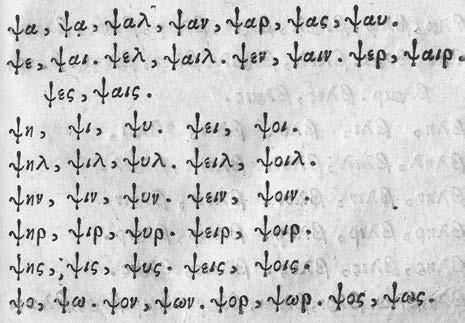 ψα, ψα, ψαλ, ψαν, ψαρ, ψας, ψαυ.
ψε, ψαι. ψελ, ψαιλ. ψεν, ψαιν. ψερ, ψαιρ.
ψες, ψαις.
ψη, ψι, ψυ. ψει, ψοι.
ψηλ, ψιλ, ψυλ. ψειλ, ψοιλ.
ψην, ψιν, ψυν. ψειν, ψοιν.
ψηρ, ψιρ, ψυρ. ψειρ, ψοιρ.
ψης, ψις, ψυς. ψεις, ψοις.
ψο, ψω. ψον, ψων. ψορ, ψωρ. ψος, ψως.